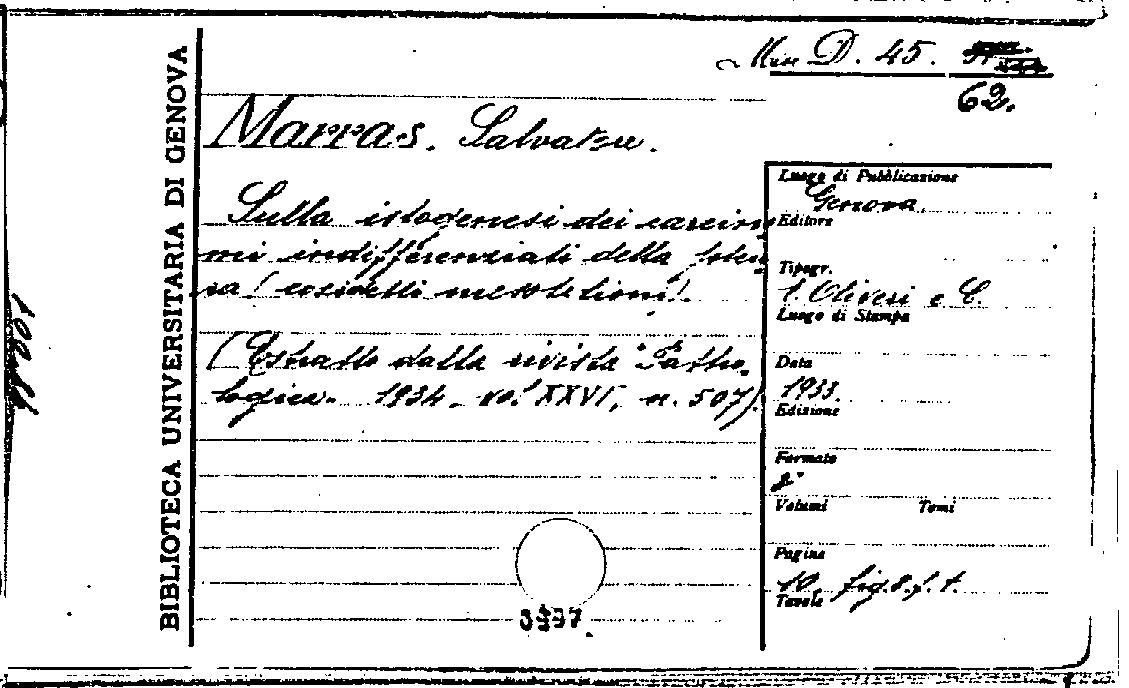 BIBLIOTECA UNIVERSITARIA DI GENOVA
Misc D. 45.
62.
Marras. Salvatore.
Sulla istogenesi dei carcino
mi indifferenziati della
sa (cosidetti mesoteliomi).
(Estratto dalla rivista "Patho-
logica" 1934 - vol XXVI, n. 507).
Luogo di Pubblicazione
Genova.
Editore
Tipogr.
Oliveri e C.
Luogo di Stampa
Data
1933.
Edizione
Formato
8°
Volumi Tomi
Pagine
10, fig. 8. f. t.
Tavole